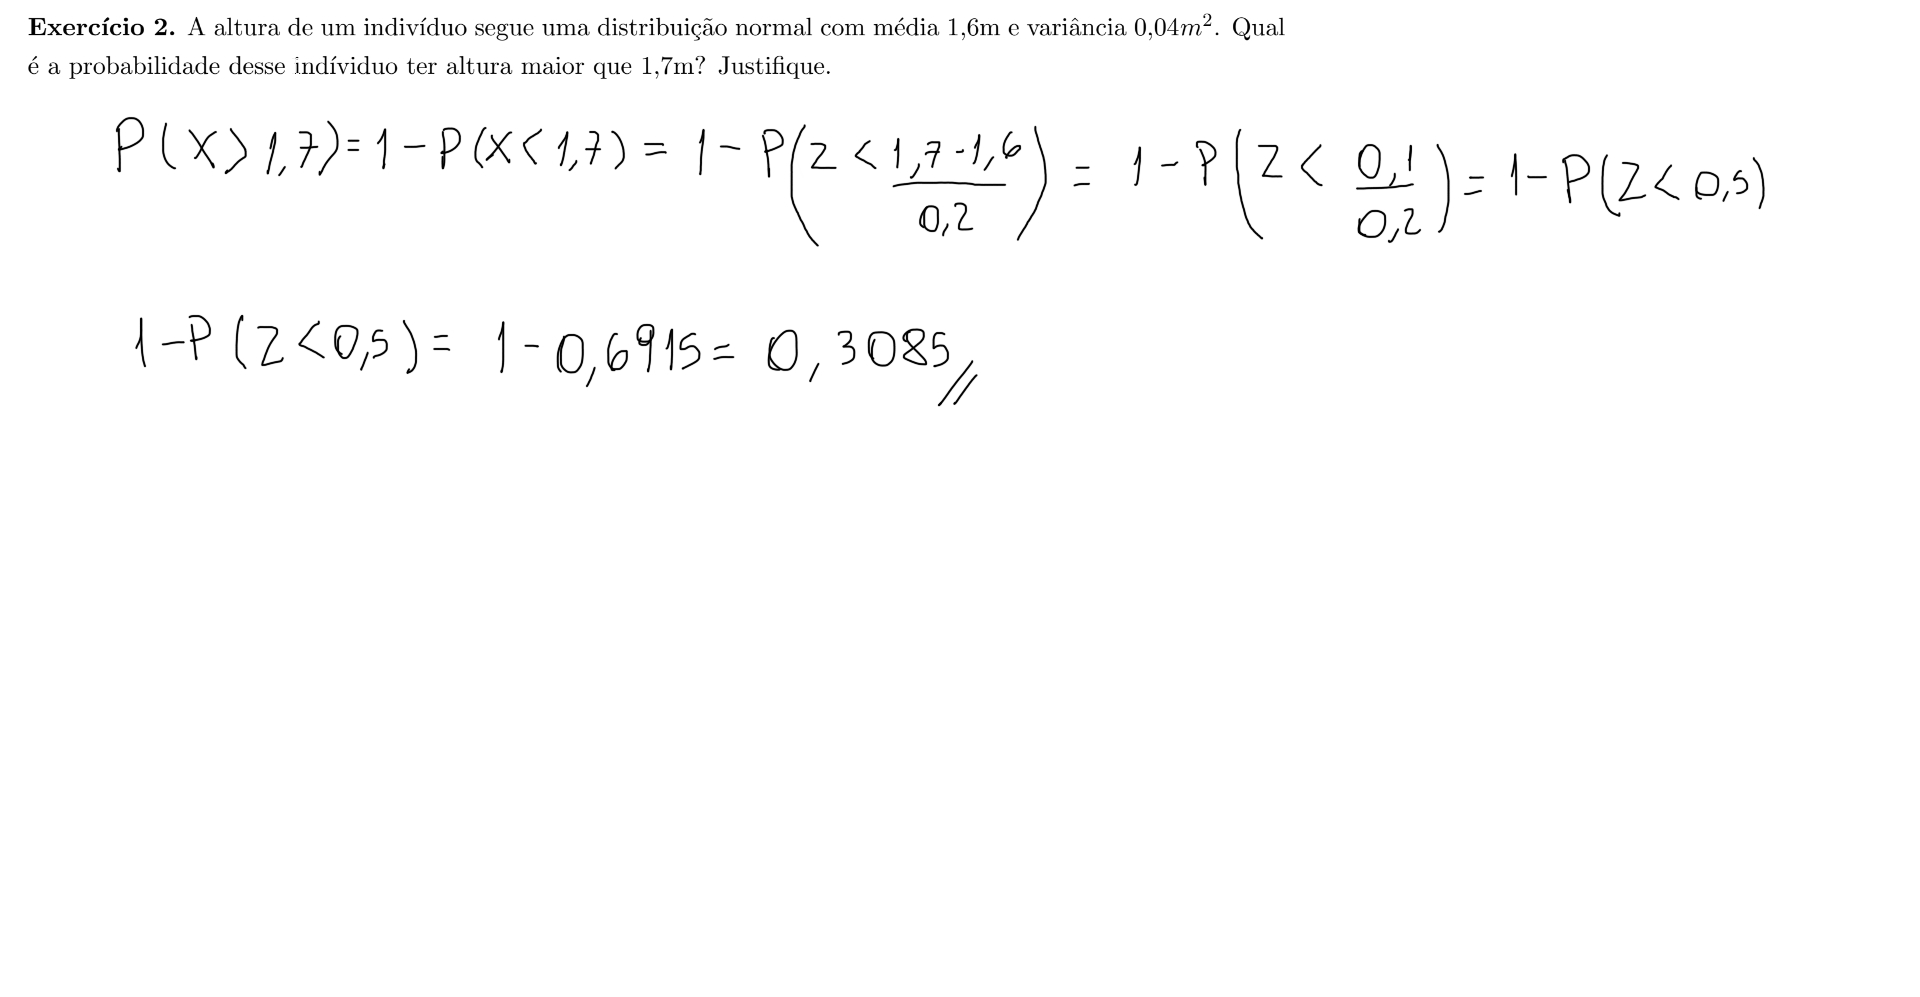 Exercício 2. A altura de um indivíduo segue uma distribuição normal com média 1,6m e variância 0,04m². Qual
é a probabilidade desse indíviduo ter altura maior que 1,7m? Justifique.
P(X>1,7)=1-P(X<1,7) = 1-P(Z < (1,7-1,6)/0,2) = 1-P(Z < 0,1/0,2) = 1-P(Z<0,5)
1-P(Z<0,5) = 1-0,6915 = 0,3085//